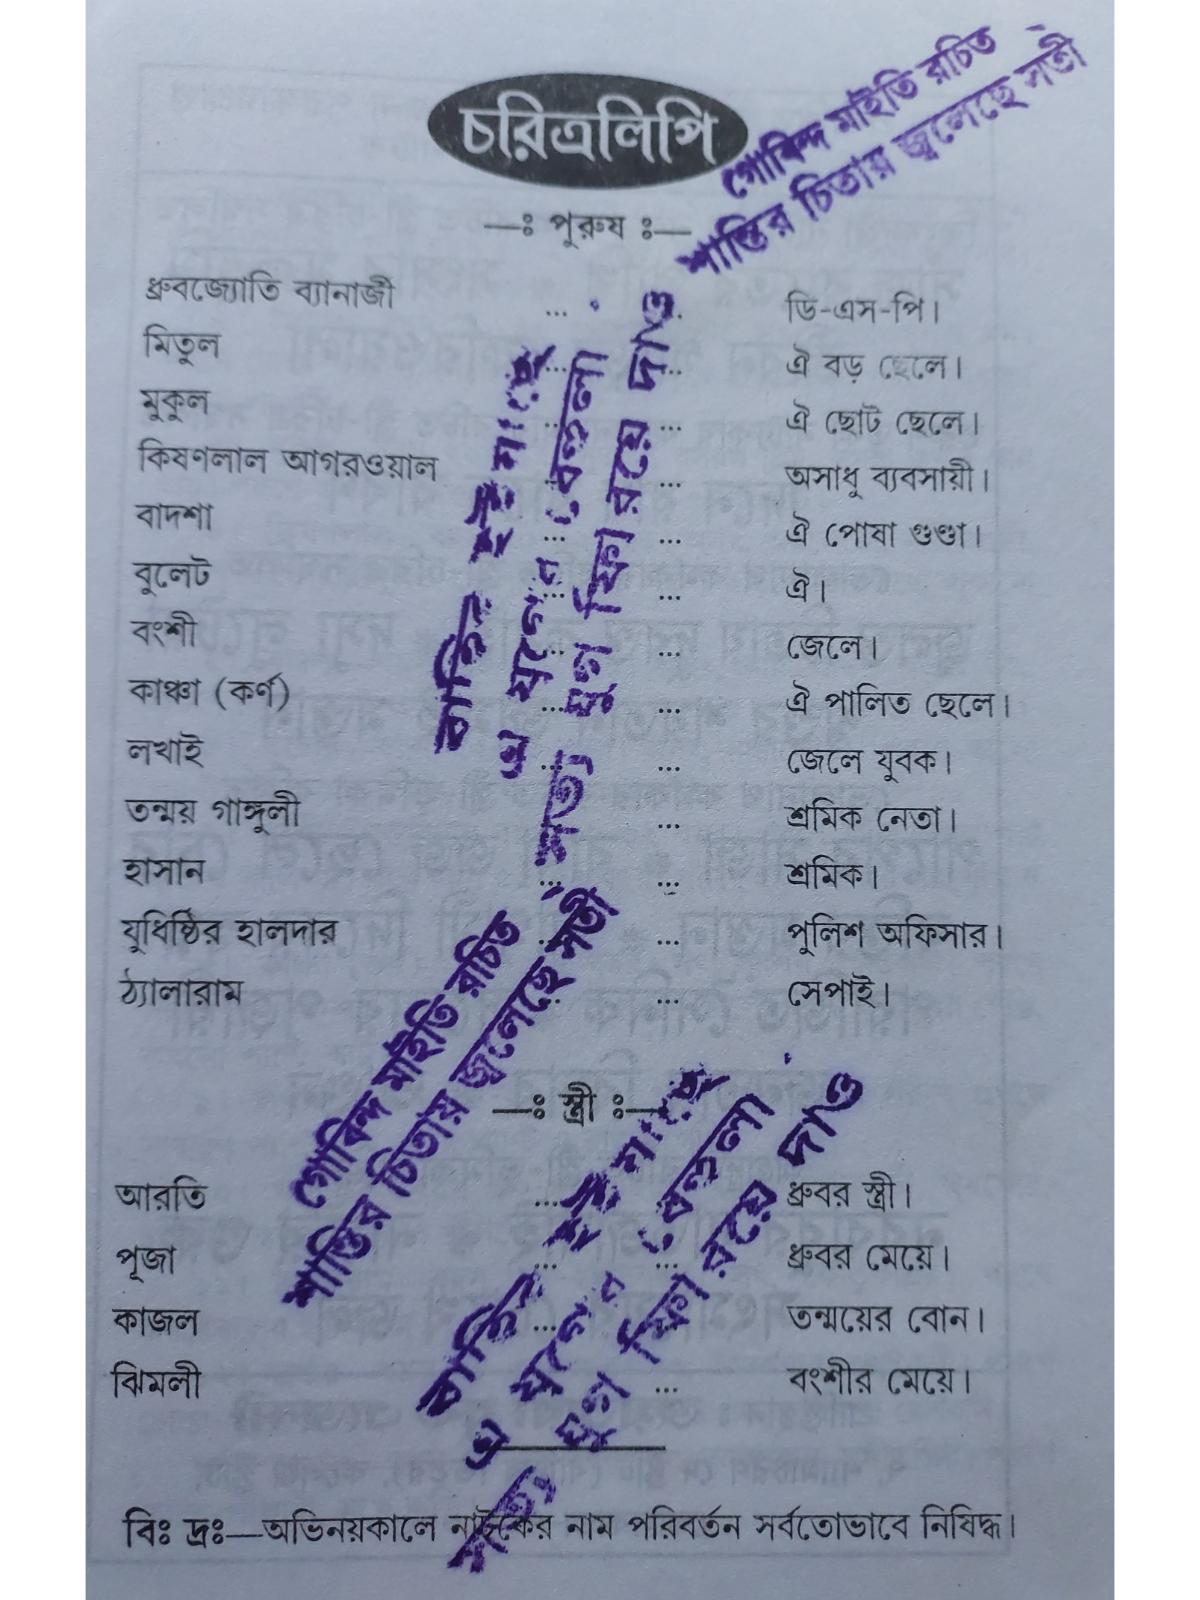 চরিত্রলিপি
—ঃ পুরুষ ঃ—
ধ্রুবজ্যোতি ব্যানার্জী ... ... ডি-এস-পি।
মিতুল ... ... ঐ বড় ছেলে।
মুকুল ... ... ঐ ছোট ছেলে।
কিষণলাল আগরওয়াল ... ... অসাধু ব্যবসায়ী।
বাদশা ... ... ঐ পোষা গুণ্ডা।
বুলেট ... ... ঐ।
বংশী ... ... জেলে।
কাঞ্চা (কর্ণ) ... ... ঐ পালিত ছেলে।
লখাই ... ... জেলে যুবক।
তন্ময় গাঙ্গুলী ... ... শ্রমিক নেতা।
হাসান ... ... শ্রমিক।
যুধিষ্ঠির হালদার ... ... পুলিশ অফিসার।
ঠ্যালারাম ... ... সেপাই।
—ঃ স্ত্রী ঃ—
আরতি ... ... ধ্রুবর স্ত্রী।
পূজা ... ... ধ্রুবর মেয়ে।
কাজল ... ... তন্ময়ের বোন।
ঝিমলী ... ... বংশীর মেয়ে।
বিঃ দ্রঃ—অভিনয়কালে নাটকের নাম পরিবর্তন সর্বতোভাবে নিষিদ্ধ।
গোবিন্দ মাইতি রচিত
শান্তির চিতায় জ্বলেছে সতী
এ যুগের বেহুলা
সত্য যুগ ফিরিয়ে দাও
গোবিন্দ মাইতি রচিত
শান্তির চিতায় জ্বলেছে সতী
এ যুগের বেহুলা
সত্য যুগ ফিরিয়ে দাও